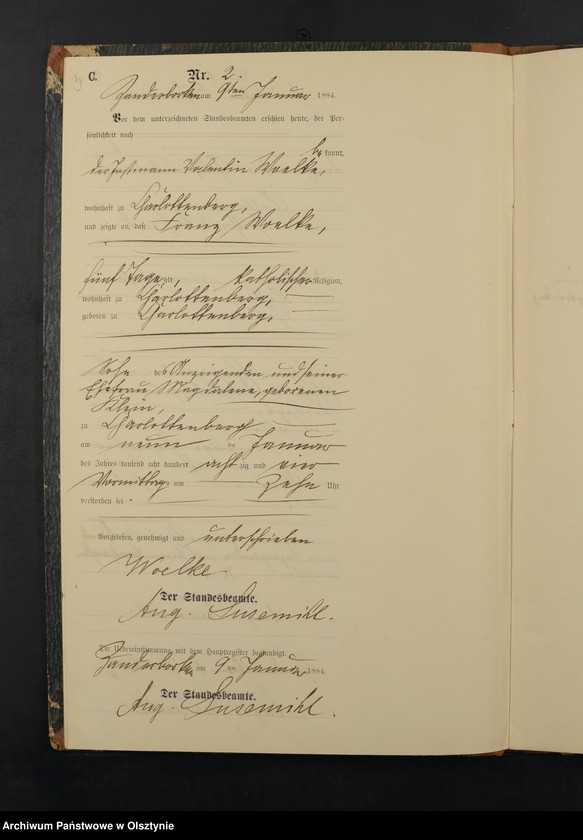 3
C.
Nr. 2.
Santerborken am 9ten Januar 1884.
Vor dem unterzeichneten Standesbeamten erschien heute, der Per-
sönlichkeit nach
be kannt,
der Instmann Valentin Woelke,
wohnhaft zu Charlottenberg,
und zeigte an, daß Franz Woelke,
fünf Tage alt, katholischer Religion,
wohnhaft zu Charlottenberg,
geboren zu Charlottenberg,
Sohn des Anzeigenden und seiner
Ehefrau Magdalene, geborenen
Klein,
zu Charlottenberg
am neun ten Januar
des Jahres tausend acht hundert acht zig und vier
Vormittags um zehn Uhr
verstorben sei
Vorgelesen, genehmigt und unterschrieben
Woelke.
Der Standesbeamte.
Aug. Susemihl.
Die Uebereinstimmung mit dem Hauptregister beglaubigt.
am 9 ten Januar 1884.
Der Standesbeamte.
Aug. Susemihl.
Archiwum Państwowe w Olsztynie